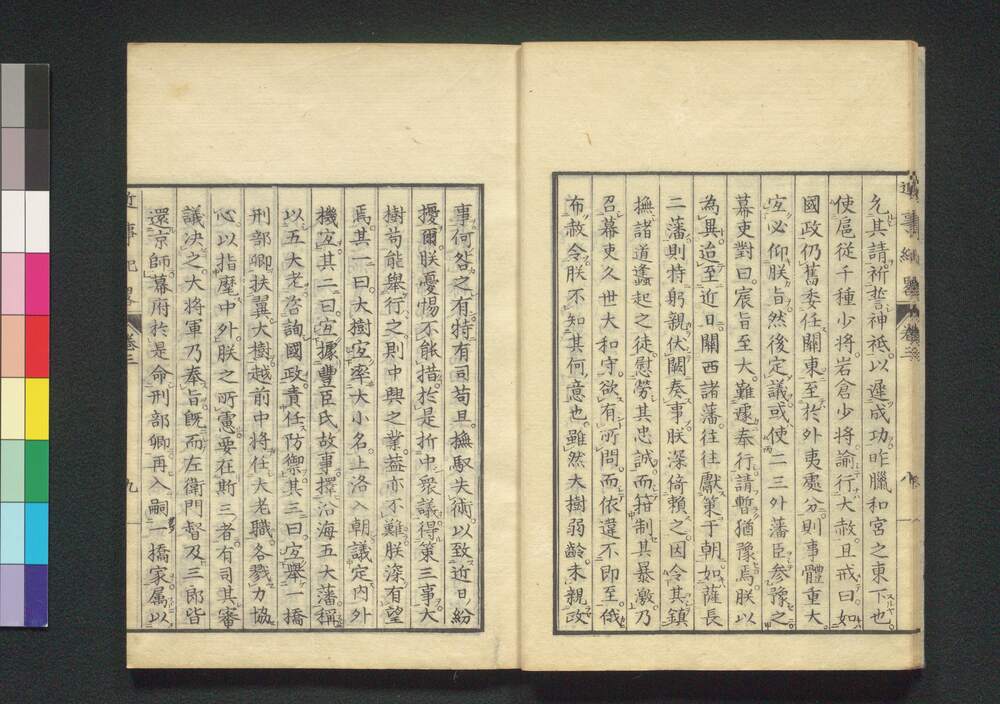 允其請祈誓神祇以遲成功昨臘和宮之東下也
使扈從千種少將岩倉少將諭行大赦且戒曰如
國政仍舊委任關東至於外夷處分則事體重大
宜必仰朕旨然後定議或使二三外藩臣參豫之
幕吏對曰宸旨至大難遽奉行請暫猶豫焉朕以
為異迨至近日關西諸藩往往獻策于朝如薩長
二藩則特躬親伏闕奏事朕深倚賴之因令其鎮
撫諸道蠭起之徒慰勞其忠誠而箝制其暴激乃
召幕吏久世大和守欲有所問而依違不即至俄
布赦令朕不知其何意也雖然大樹弱齡未親政
近事紀略 卷三 八
事何咎之有特有司苟且撫馭失術以致近日紛
擾爾朕憂惕不能措於是折中衆議得策三事大
樹苟能舉行之則中興之業蓋亦不難朕深有望
焉其一曰大樹宜率大小名上洛入朝議定內外
機宜其二曰宜據豐臣氏故事擇沿海五大藩稱
以五大老咨詢國政責任防禦其三曰宜舉一橋
刑部卿扶翼大樹越前中將任大老職各戮力協
心以指麾中外朕之所慮要在斯三者有司其審
議決之大將軍乃奉旨既而左衛門督及三郎皆
還京師幕府於是命刑部卿再入嗣一橋家属以
近事紀畧 卷三 九